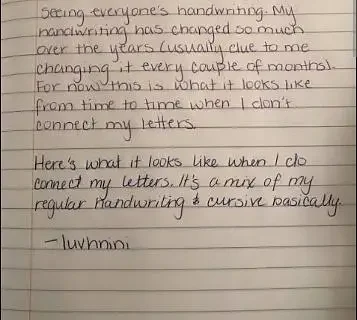 seeing everyone's handwriting. My
handwriting has changed so much
over the years (usually due to me
changing it every couple of months).
For now this is what it looks like
from time to time when I don't
connect my letters.
Here's what it looks like when I do
connect my letters. It's a mix of my
regular handwriting & cursive basically.
- luvhnini